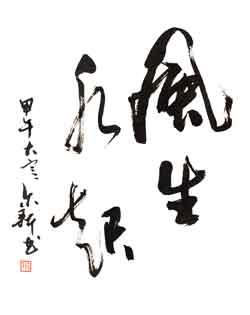 風生
水起
甲午大寒尔新书